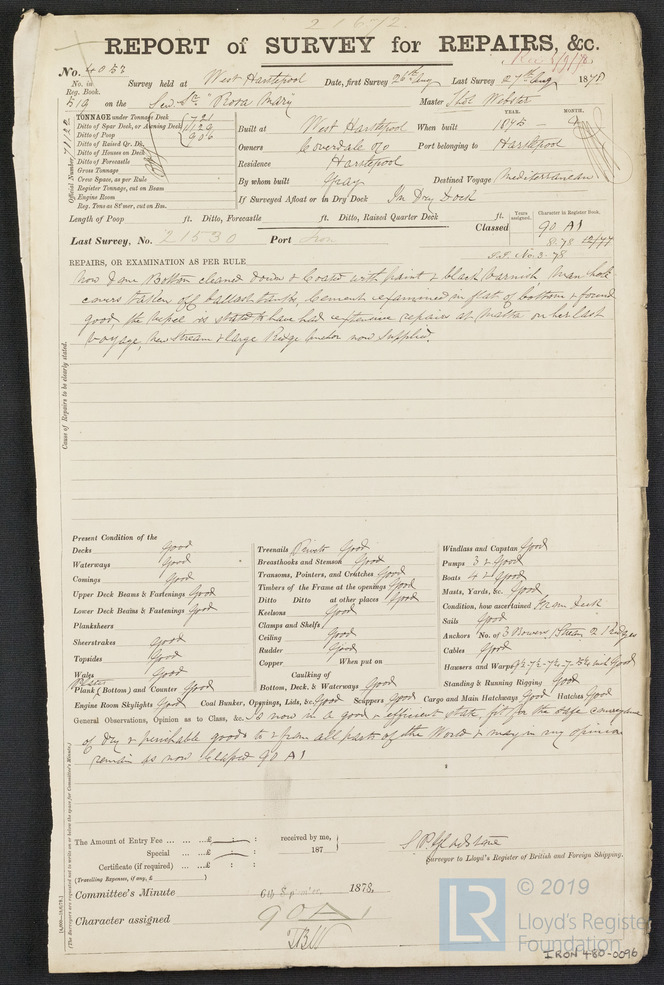 REPORT of SURVEY for REPAIRS, &c.
No. 4053 Survey held at West Hartlepool Date, first Survey 26th Aug Last Survey 27th Aug 1878
No. in Reg. Book.
519 on the Screw Str "Rosa Mary" Master
TONNAGE under Tonnage Deck 721
Ditto of Spar Deck, or Awning Deck
Ditto of Poop 906
Ditto of Raised Qr. Dk.
Ditto of Houses on Deck
Ditto of Forecastle
Gross Tonnage
Crew Space, as per Rule
Register Tonnage, cut on Beam
Engine Room
Reg. Tons as St'mer, cut on Bm.
Official Number
YEAR. MONTH.
Built at West Hartlepool When built 1875
Owners Coverdale & Co Port belonging to Hartlepool
Residence Hartlepool
By whom built Gray Destined Voyage Mediterranean
If Surveyed Afloat or in Dry Dock In Dry Dock
Length of Poop ft. Ditto, Forecastle ft. Ditto, Raised Quarter Deck ft.
Years assigned. Character in Register Book.
Classed 90 A1
Last Survey, No. 21530 Port
8.78 12/77
REPAIRS, OR EXAMINATION AS PER RULE
Now done Bottom cleaned down & Coated with paint & black varnish Man hole
covers taken off ballast tanks, Cement examined in flat of bottom & found
good, the vessel is stated to have had extensive repairs at Malta on her last
voyage, New Stream & large Kedge Anchor now supplied.
Cause of Repairs to be clearly stated.
Present Condition of the
Decks Good
Waterways Good
Comings Good
Upper Deck Beams & Fastenings Good
Lower Deck Beams & Fastenings Good
Planksheers
Sheerstrakes Good
Topsides Good
Wales Good
Plates
Plank (Bottom) and Counter Good
Treenails Rivets Good
Breasthooks and Stemson Good
Transoms, Pointers, and Crutches Good
Timbers of the Frame at the openings Good
Ditto Ditto at other places Good
Keelsons Good
Clamps and Shelfs
Ceiling Good
Rudder Good
Copper When put on
Caulking of
Bottom, Deck, & Waterways Good
Windlass and Capstan Good
Pumps 3 & Good
Boats 4 & Good
Masts, Yards, &c. Good
Condition, how ascertained From Deck
Sails Good
Anchors No. of 3 Bowers 1 Stream 2 Kedges
Cables Good
Hawsers and Warps Good
Standing & Running Rigging Good
Engine Room Skylights Good Coal Bunker, Openings, Lids, &c. Good Scuppers Good Cargo and Main Hatchways Good Hatches Good
General Observations, Opinion as to Class, &c. Is now in a good & efficient state, fit for the safe conveyance
of dry & perishable goods to & from all parts of the World & may in my opinion
remain as now Classed 90 A1
The Amount of Entry Fee ... ... ...£ : : received by me,
Special ... ...£ : : 187
Certificate (if required) ... ...£ : :
(Travelling Expenses, if any, £ )
Surveyor to Lloyd's Register of British and Foreign Shipping.
Committee's Minute 1878
Character assigned 90 A1
(The Surveyors are requested not to write on or below the space for Committee's Minute.)
© 2019
LR
Lloyd's Register
Foundation
IRON 480-0096